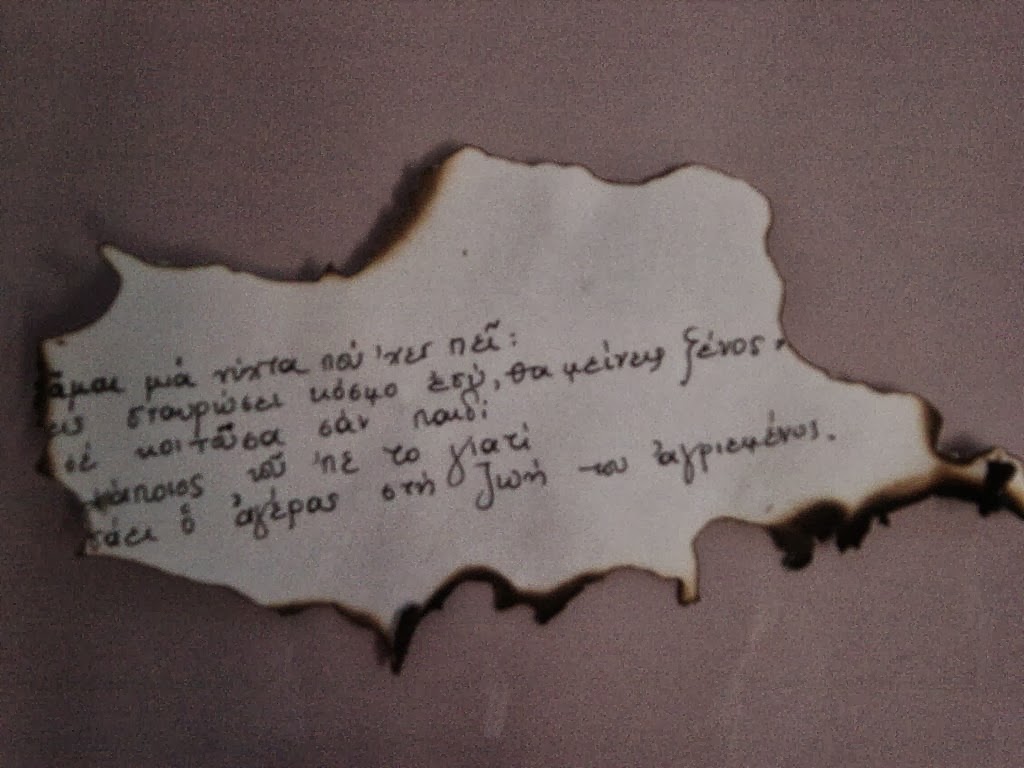 ᾶμαι μιά νύχτα πού 'χες πεῖ:
εἰς σταυρώσει κόσμο ἐσύ, θα μείνεις ξένος.
σέ κοιτοῦσα σάν παιδί
κάποιος τοῦ 'πε το γιατί
σάει ὁ ἀγέρας στή ζωή του ἀγριεμένος.